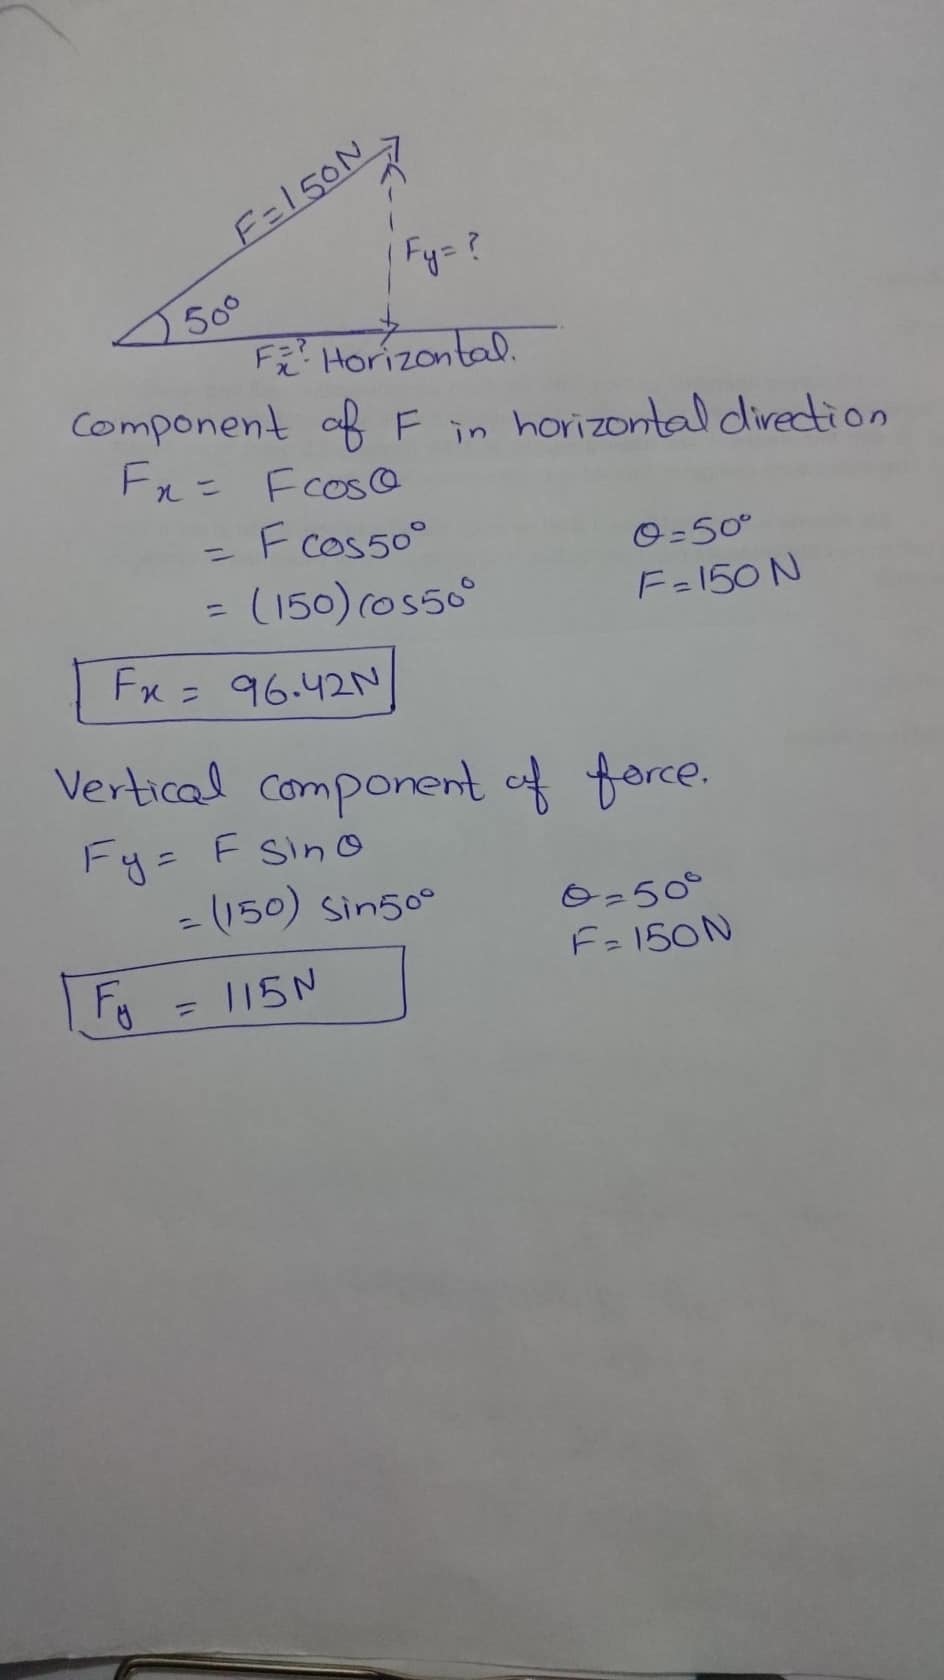 F=150N
Fy=?
50°
Fx=? Horizontal.
Component of F in horizontal direction
Fx = F cosθ
= F cos50° θ=50°
= (150) cos50° F=150N
Fx = 96.42N
Vertical component of force.
Fy = F sinθ
= (150) sin50° θ=50°
F=150N
Fy = 115N